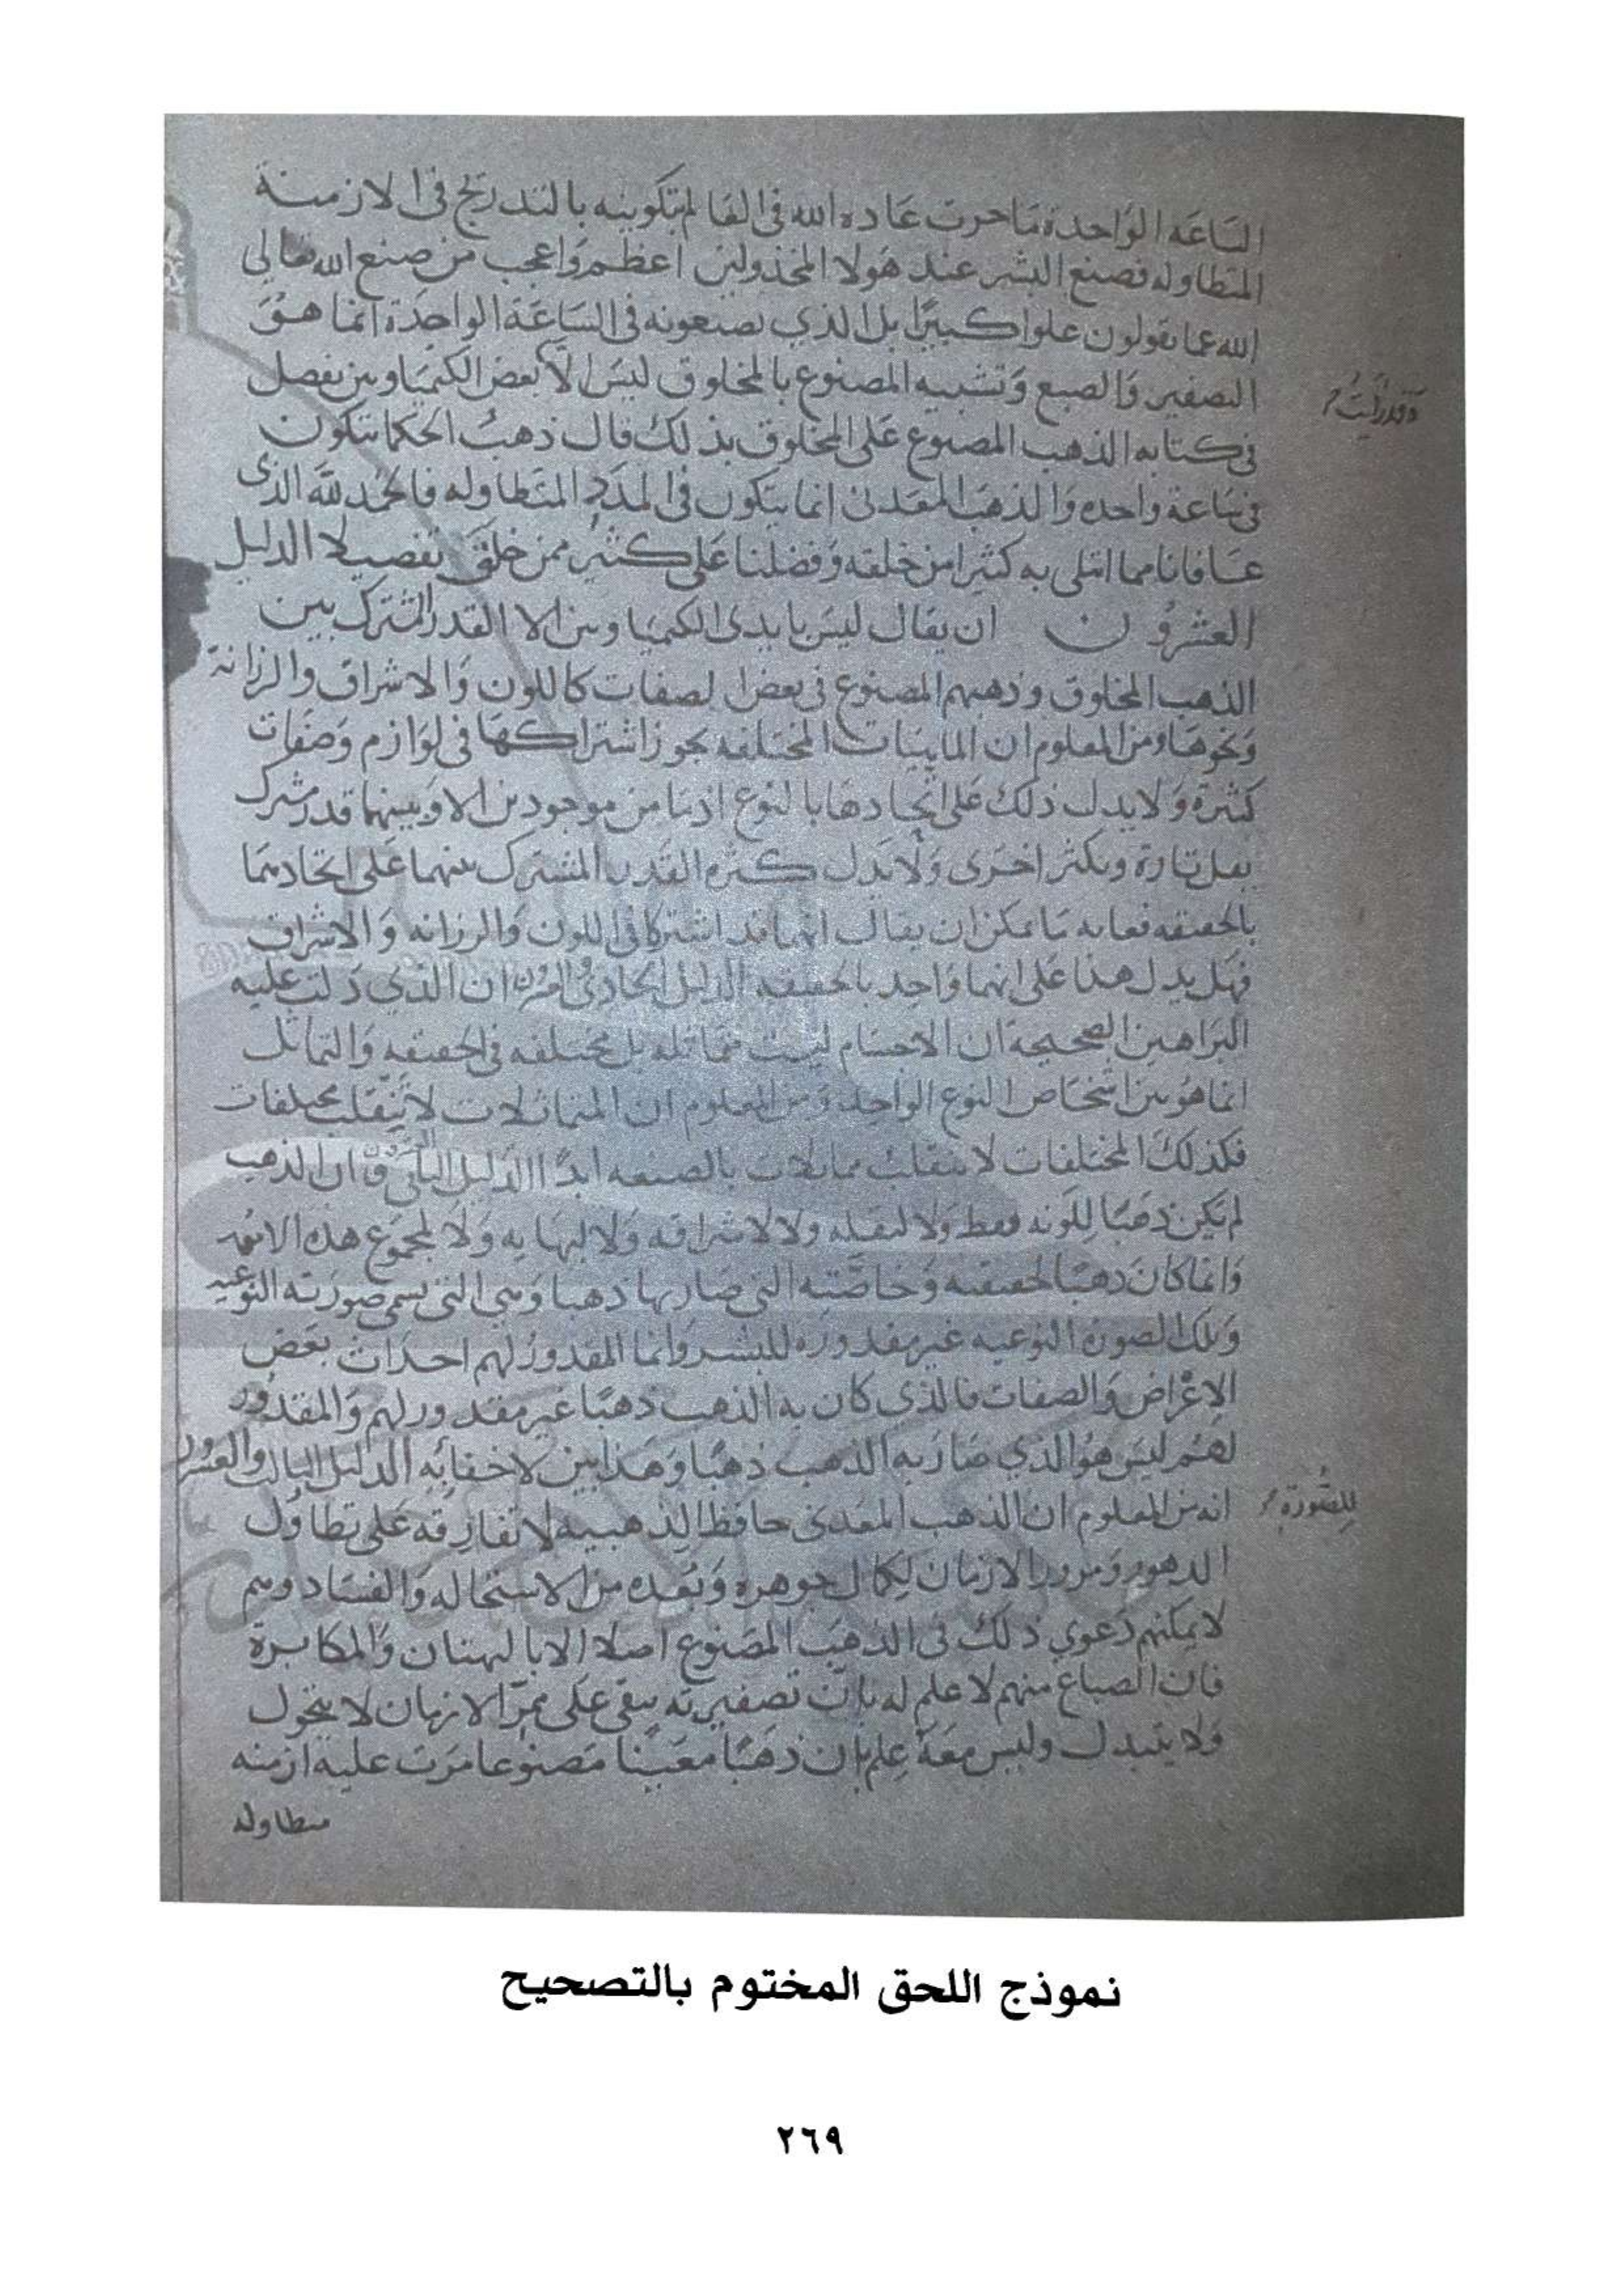 الساعه الواحدة ما جرت عاده الله في العالم بتكوينه بالتدريج في الازمنة
المتطاوله فصنع البشر عند هولا المخذولين اعظم واعجب من صنع الله تعالى
الله عما يقولون علوا كبيرًا بل الذي يصنعونه في الساعة الواحدة انما هو
التصفير والصبغ وتشبيه المصنوع بالمخلوق ليس الا بعض الكيمياويين يفضل
وقد رايت
في كتابه الذهب المصنوع على المخلوق بذلك قال ذهب الحكما يتكون
في ساعة واحده والذهب المعدني انما يتكون في المدد المتطاوله فالحمد لله الذي
عافانا مما ابتلى به كثيرا من خلقه وفضلنا على كثير ممن خلق تفضيلا الدليل
العشرون ان يقال ليس بايدي الكيمياويين الا القدر المشترك بين
الذهب المخلوق وذهبهم المصنوع في بعض الصفات كاللون والاشراق والرزانة
ونحوها ومن المعلوم ان الماهيات المختلفه يجوز اشتراكها في لوازم وصفات
كثيرة ولا يدل ذلك على اتحادها بالنوع اذ ما من موجودين الا وبينهما قدر مشترك
يقل تارة ويكثر اخرى ولا يدل كثره القدر المشترك بينهما على اتحادهما
بالحقيقه فغايه ما يمكن ان يقال انهما قد اشتركا في اللون والرزانه والاشراق
فهل يدل هذا على انهما واحد بالحقيقه الدليل الحادي والعشرون ان الذي دلت عليه
البراهين الصحيحة ان الاجسام ليست متماثله بل مختلفه في الحقيقه والتماثل
انما هو بين اشخاص النوع الواحد ومن المعلوم ان المتماثلات لا تنقلب مختلفات
فكذلك المختلفات لا تنقلب متماثلات بالصنعه ابدًا الدليل الثاني ان الذهب
لم يكن ذهبًا للونه فقط ولا لثقله ولا لاشراقه ولا لبهايه ولا لمجموع هذه
وانما كان ذهبًا لحقيقته وخاصّته التي صار بها ذهبا وهي التي تسمى صورته النوعيه
وتلك الصورة النوعيه غير مقدوره للبشر وانما المقدور لهم احداث بعض
الاعراض والصفات فالذي كان به الذهب ذهبًا غير مقدور لهم والمقدور
لهم ليس هو الذي صار به الذهب ذهبًا وهذا بين لا خفا به الدليل الثالث والعشرون
انه من المعلوم ان الذهب المعدني حافظ الذهبيه لا تفارقه على تطاول
للصورة
الدهور ومرور الازمان لكمال جوهره وبُعده من الاستحاله والفساد وهم
لا يمكنهم دعوي ذلك في الذهب المصنوع اصلا الا بالبهتان والمكابرة
فان الصباغ منهم لا علم له بان تصفيره يبقى على ممرّ الازمان لا يتحول
ولا يتبدل وليس معه علم بان ذهبًا معينًا مصنوعا مرت عليه ازمنه
متطاوله
نموذج اللحق المختوم بالتصحيح
٢٦٩